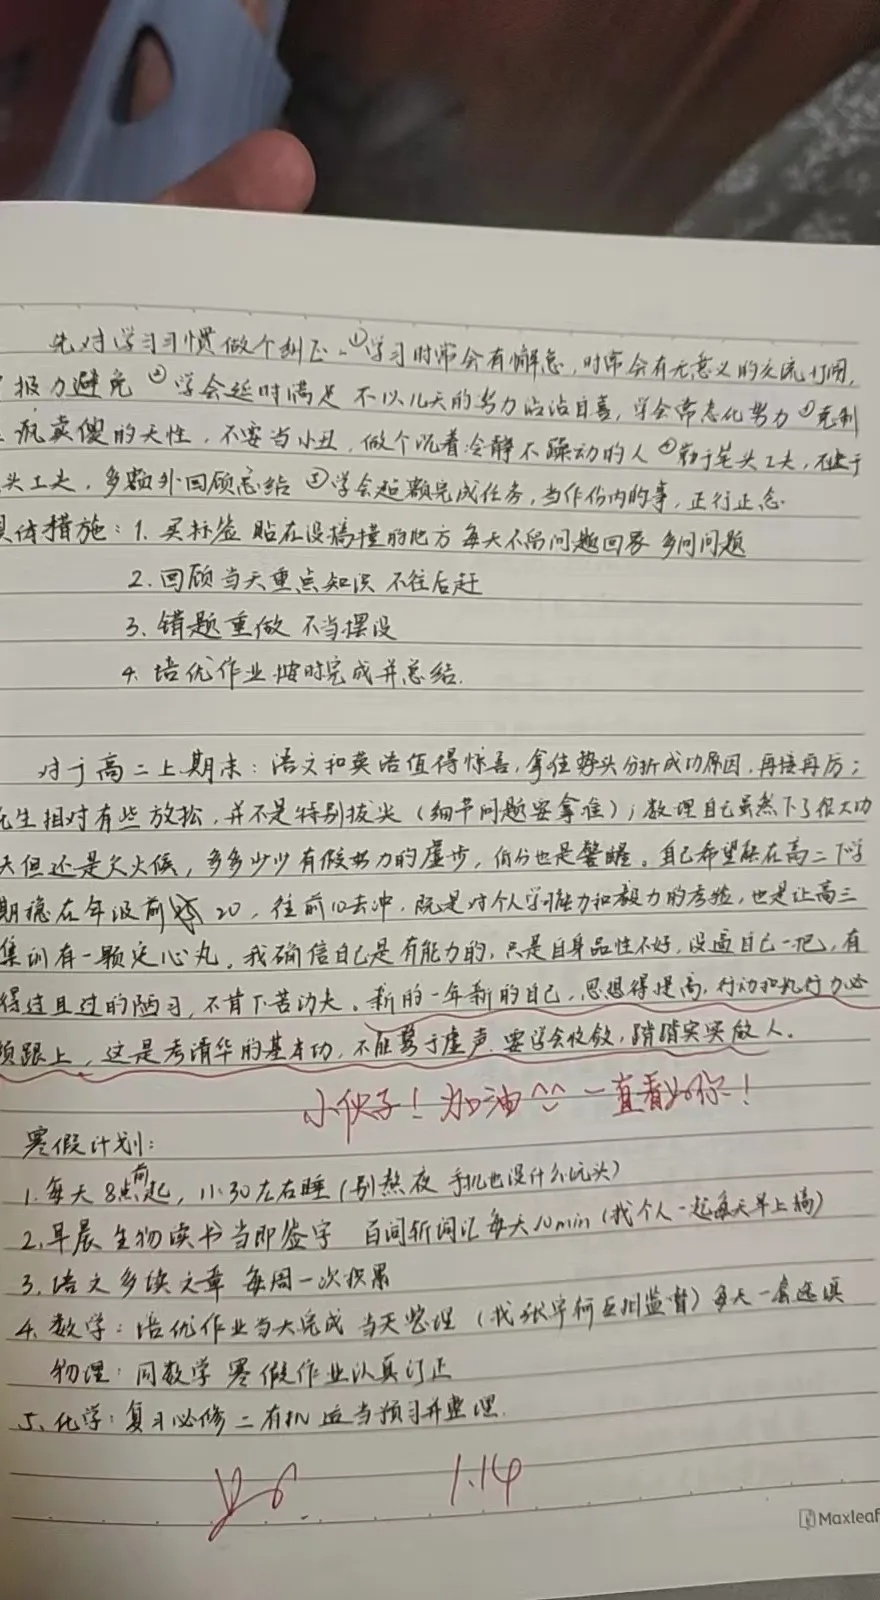 先对学习习惯做个纠正。①学习时常会有懈怠,时常会有无意义的交流打闹,
报力避免 ②学会延时满足 不以几天的努力沾沾自喜,学会常态化努力 ③克制
疯卖傻的天性,不要当小丑,做个沉着冷静不躁动的人 ④勤于笔头工夫,不止于
头工夫,多额外回顾总结 ⑤学会超额完成任务,当作份内的事,正行正念.
具体措施:1. 买标签 贴在没搞懂的地方 每天不留问题回家 多问问题
2. 回顾当天重点知识 不往后赶
3. 错题重做 不当摆设
4. 培优作业按时完成并总结.
对于高二上期末:语文和英语值得惊喜,拿住势头分析成功原因,再接再厉;
化生相对有些放松,并不是特别拔尖(细节问题要拿准);数理自己虽然下了很大功
夫但还是欠火候,多多少少有假努力的虚步,低分也是警醒。自己希望能在高二下学
期稳在年级前 20,往前10去冲,既是对个人学习能力和毅力的考验,也是让高三
集训有一颗定心丸。我确信自己是有能力的,只是自身品性不好,没逼自己一把,有
得过且过的陋习,不肯下苦功夫。新的一年新的自己,思想得提高,行动和执行力必
须跟上,这是考清华的基本功,不能骛于虚声.要学会收敛,踏踏实实做人.
小伙子!加油^^一直看好你!
寒假计划:
1.每天8点前起,11:30左右睡(别熬夜 手机也没什么玩头)
2.早晨 生物读书当即签字 百词斩词汇每天10min(找个人一起每天早上搞)
3.语文多读文章 每周一次积累
4.数学:培优作业当天完成 当天整理(找张宇柯互相监督)每天一套选填
物理:同数学 寒假作业认真订正
5.化学:复习必修二有机 适当预习并整理.
1.14
Maxleaf